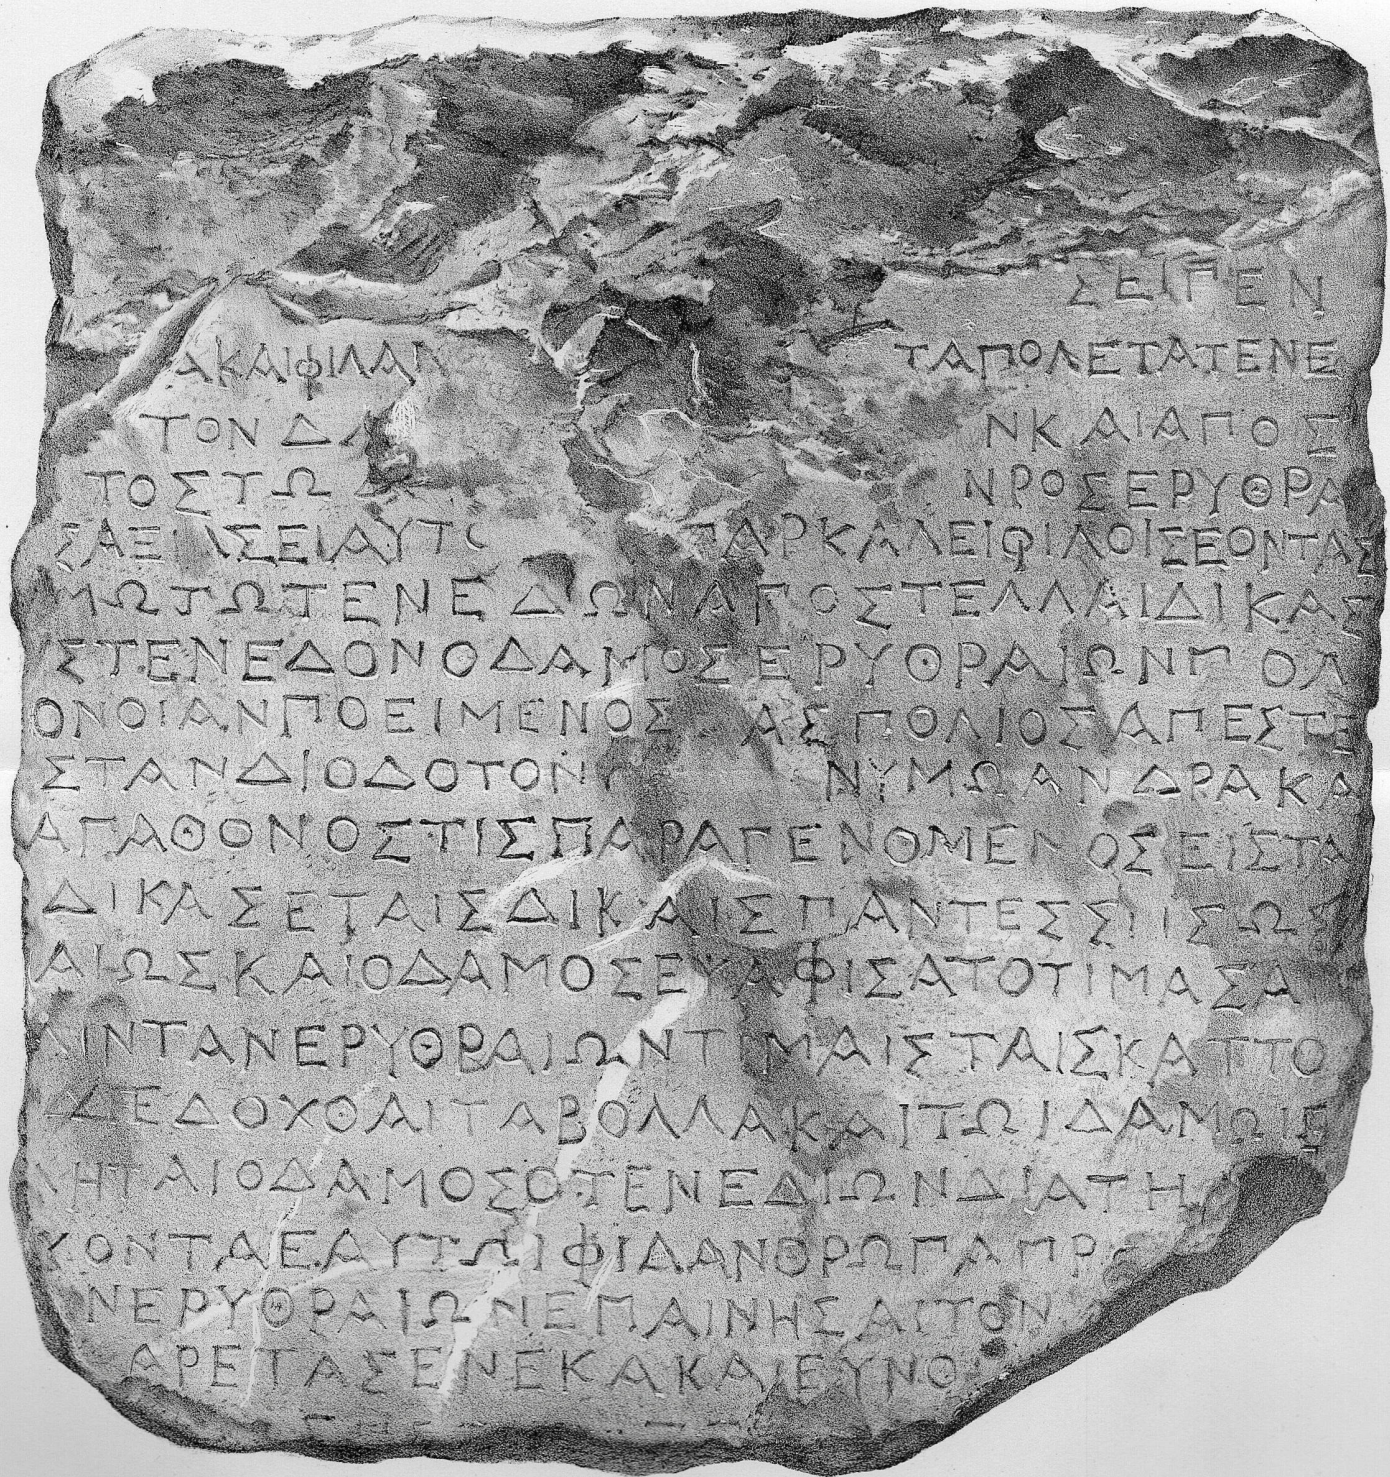 ΣΕΙΓΕΝ
ΑΚΑΙΦΙΛΑΝ ΤΑΠΟΛΕΤΑΤΕΝΕ
ΤΟΝΔΑ ΝΚΑΙΑΠΟΣ
ΤΟΣΤΩ ΝΡΟΣΕΡΥΘΡΑ
ΣΑΞΙ ΣΕΙΑΥΤΟ ΠΑΡΚΑΛΕΙΦΙΛΟΙΣΕΟΝΤΑΣ
ΜΩΤΩΤΕΝΕΔΙΩΝΑΠΟΣΤΕΛΛΑΙΔΙΚΑΣ
ΙΣΤΕΝΕΔΟΝΟΔΑΜΟΣΕΡΥΘΡΑΙΩΝΠΟΛ
ΟΝΟΙΑΝΠΟΕΙΜΕΝΟΣ ΑΣΠΟΛΙΟΣΑΠΕΣΤΕ
ΣΤΑΝΔΙΟΔΟΤΟΝ ΝΥΜΩΑΝΔΡΑΚΑ
ΑΓΑΘΟΝΟΣΤΙΣΠΑΡΑΓΕΝΟΜΕΝΟΣΕΙΣΤΑ
ΔΙΚΑΣΕΤΑΙΣΔΙΚΑΙΣΠΑΝΤΕΣΣΙΙΣΩΣ
ΑΙΩΣΚΑΙΟΔΑΜΟΣΕΥΑΦΙΣΑΤΟΤΙΜΑΣΑ
ΛΙΝΤΑΝΕΡΥΘΡΑΙΩΝΤΙΜΑΙΣΤΑΙΣΚΑΤΤΟ
ΔΕΔΟΧΘΑΙΤΑΒΟΛΛΑΚΑΙΤΩΙΔΑΜΩΙΕ
ΝΗΤΑΙΟΔΑΜΟΣΟΤΕΝΕΔΙΩΝΔΙΑΤΗ
ΚΟΝΤΑΕΑΥΤΩΙΦΙΛΑΝΘΡΩΠΑΠΡ
ΝΕΡΥΘΡΑΙΩΝΕΠΑΙΝΗΣΑΙΤΟΝ
ΑΡΕΤΑΣΕΝΕΚΑΚΑΙΕΥΝΟ